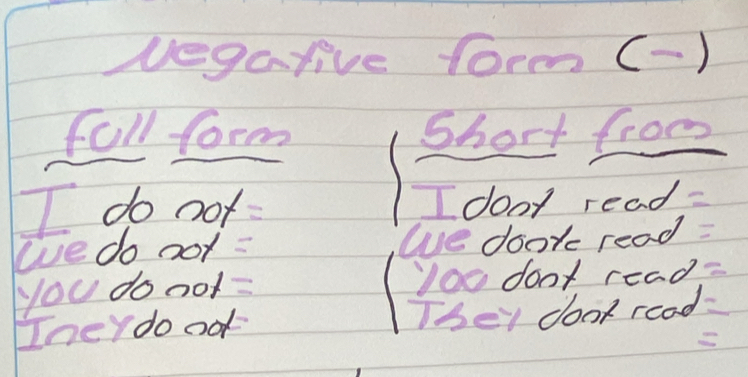 Negative form (-)
full form
Short from
I do not =
We do not =
you do not =
They do not =
I dont read =
We dont read =
you dont read =
They dont read =
=